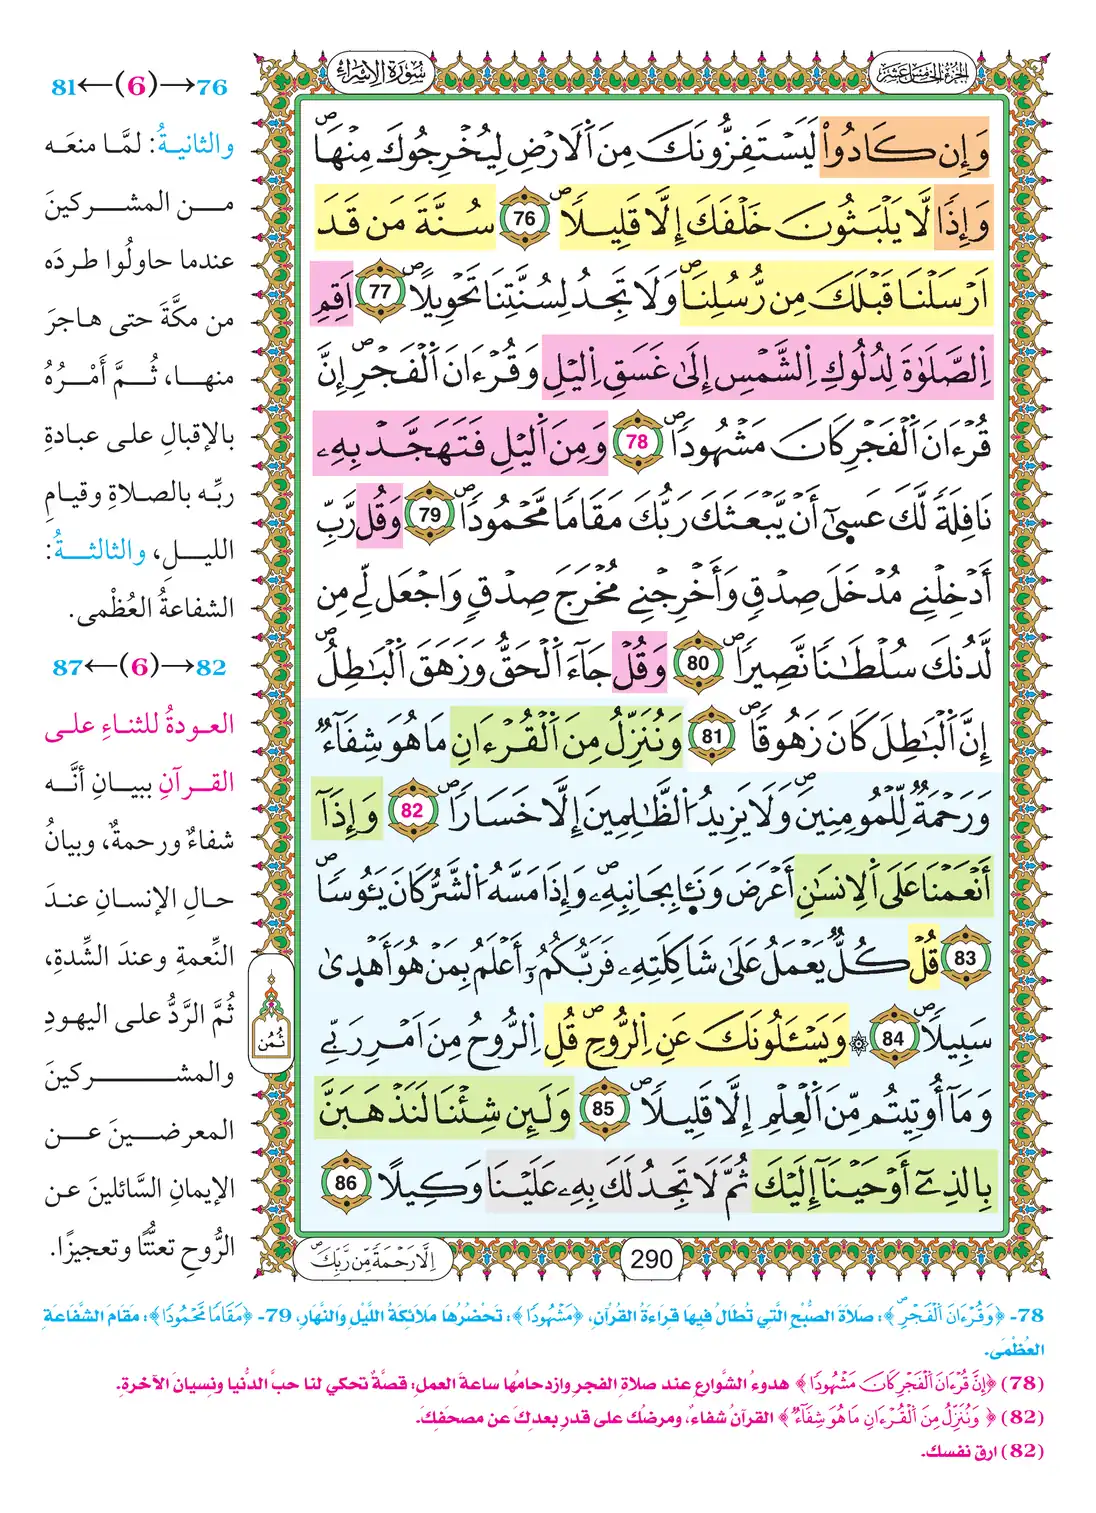 سُورَةُ الإِسْرَاءِ
الجزء الخامس عشر
وَإِن كَادُواْ لَيَسْتَفِزُّونَكَ مِنَ اَلَارْضِ لِيُخْرِجُوكَ مِنْهَا
وَإِذاٗ لَّا يَلْبَثُونَ خَلْفَكَ إِلَّا قَلِيلاٗ 76 سُنَّةَ مَن قَدَ
اَرْسَلْنَا قَبْلَكَ مِن رُّسُلِنَا وَلَا تَجِدُ لِسُنَّتِنَا تَحْوِيلاً 77 اَقِمِ
اِلصَّلَوٰةَ لِدُلُوكِ اِلشَّمْسِ إِلَىٰ غَسَقِ اِليْلِ وَقُرْءَانَ اَلْفَجْرِ إِنَّ
قُرْءَانَ اَلْفَجْرِ كَانَ مَشْهُوداٗ 78 وَمِنَ اَليْلِ فَتَهَجَّدْ بِهِۦ
نَافِلَةٗ لَّكَ عَسىٰٓ أَنْ يَّبْعَثَكَ رَبُّكَ مَقَاماٗ مَّحْمُوداٗ 79 وَقُل رَّبِّ
أَدْخِلْنِے مُدْخَلَ صِدْقٖ وَأَخْرِجْنِے مُخْرَجَ صِدْقٖ وَاجْعَل لِّے مِن
لَّدُنكَ سُلْطَٰناٗ نَّصِيراٗ 80 وَقُلْ جَآءَ اَلْحَقُّ وَزَهَقَ اَلْبَٰطِلُ
إِنَّ اَلْبَٰطِلَ كَانَ زَهُوقاٗ 81 وَنُنَزِّلُ مِنَ اَلْقُرْءَانِ مَا هُوَ شِفَآءٞ
وَرَحْمَةٞ لِّلْمُومِنِينَ وَلَا يَزِيدُ اُلظَّٰلِمِينَ إِلَّا خَسَاراٗ 82 وَإِذَآ
أَنْعَمْنَا عَلَى اَلِانسَٰنِ أَعْرَضَ وَنَـَٔا بِجَانِبِهِۦ وَإِذَا مَسَّهُ اُلشَّرُّ كَانَ يَـُٔوساٗ
83 قُلْ كُلّٞ يَعْمَلُ عَلَىٰ شَاكِلَتِهِۦ فَرَبُّكُمُۥٓ أَعْلَمُ بِمَنْ هُوَ أَهْدىٰ
سَبِيلاٗ 84 ۞ وَيَسْـَٔلُونَكَ عَنِ اِلرُّوحِ قُلِ اِلرُّوحُ مِنَ اَمْرِ رَبِّے
وَمَآ أُوتِيتُم مِّنَ اَلْعِلْمِ إِلَّا قَلِيلاٗ 85 وَلَئِن شِئْنَا لَنَذْهَبَنَّ
بِالذِےٓ أَوْحَيْنَآ إِلَيْكَ ثُمَّ لَا تَجِدُ لَكَ بِهِۦ عَلَيْنَا وَكِيلاً 86
ثُمُن
290
اِلَّا رَحْمَةٗ مِّن رَّبِّكَ
76→(6)←81
والثانيةُ: لمَّا منعَه
من المشركينَ
عندما حاولُوا طردَه
من مكَّةَ حتى هاجرَ
منها، ثُمَّ أَمْرُهُ
بالإقبالِ على عبادةِ
ربِّه بالصلاةِ وقيامِ
الليلِ، والثالثةُ:
الشفاعةُ العُظْمى.
82→(6)←87
العودةُ للثناءِ على
القرآنِ ببيانِ أنَّه
شفاءٌ ورحمةٌ، وبيانُ
حالِ الإنسانِ عندَ
النِّعمةِ وعندَ الشِّدةِ،
ثُمَّ الرَّدُّ على اليهودِ
والمشركينَ
المعرضينَ عن
الإيمانِ السَّائلينَ عن
الرُّوحِ تعنُّتًا وتعجيزًا.
78- ﴿وَقُرْءَانَ اَلْفَجْرِ﴾: صلاةَ الصُّبْحِ الَّتي تُطَالُ فيهَا قراءَةُ القُرآنِ، ﴿مَشْهُودًا﴾: تَحْضُرُهَا مَلَائِكَةُ اللَّيْلِ والنَّهارِ، 79- ﴿مَقَامًا مَّحْمُودًا﴾: مَقَامَ الشَّفَاعَةِ
العُظْمَى.
(78) ﴿إِنَّ قُرْءَانَ اَلْفَجْرِ كَانَ مَشْهُودًا﴾ هدوءُ الشَّوارعِ عند صلاةِ الفجرِ وازدحامُها ساعةَ العملِ: قصَّةٌ تحكي لنا حبَّ الدُّنيا ونسيانَ الآخرةِ.
(82) ﴿وَنُنَزِّلُ مِنَ اَلْقُرْءَانِ مَا هُوَ شِفَآءٞ﴾ القرآنُ شفاءٌ، ومرضُك على قدرِ بعدِكَ عن مصحفِكَ.
(82) ارق نفسك.